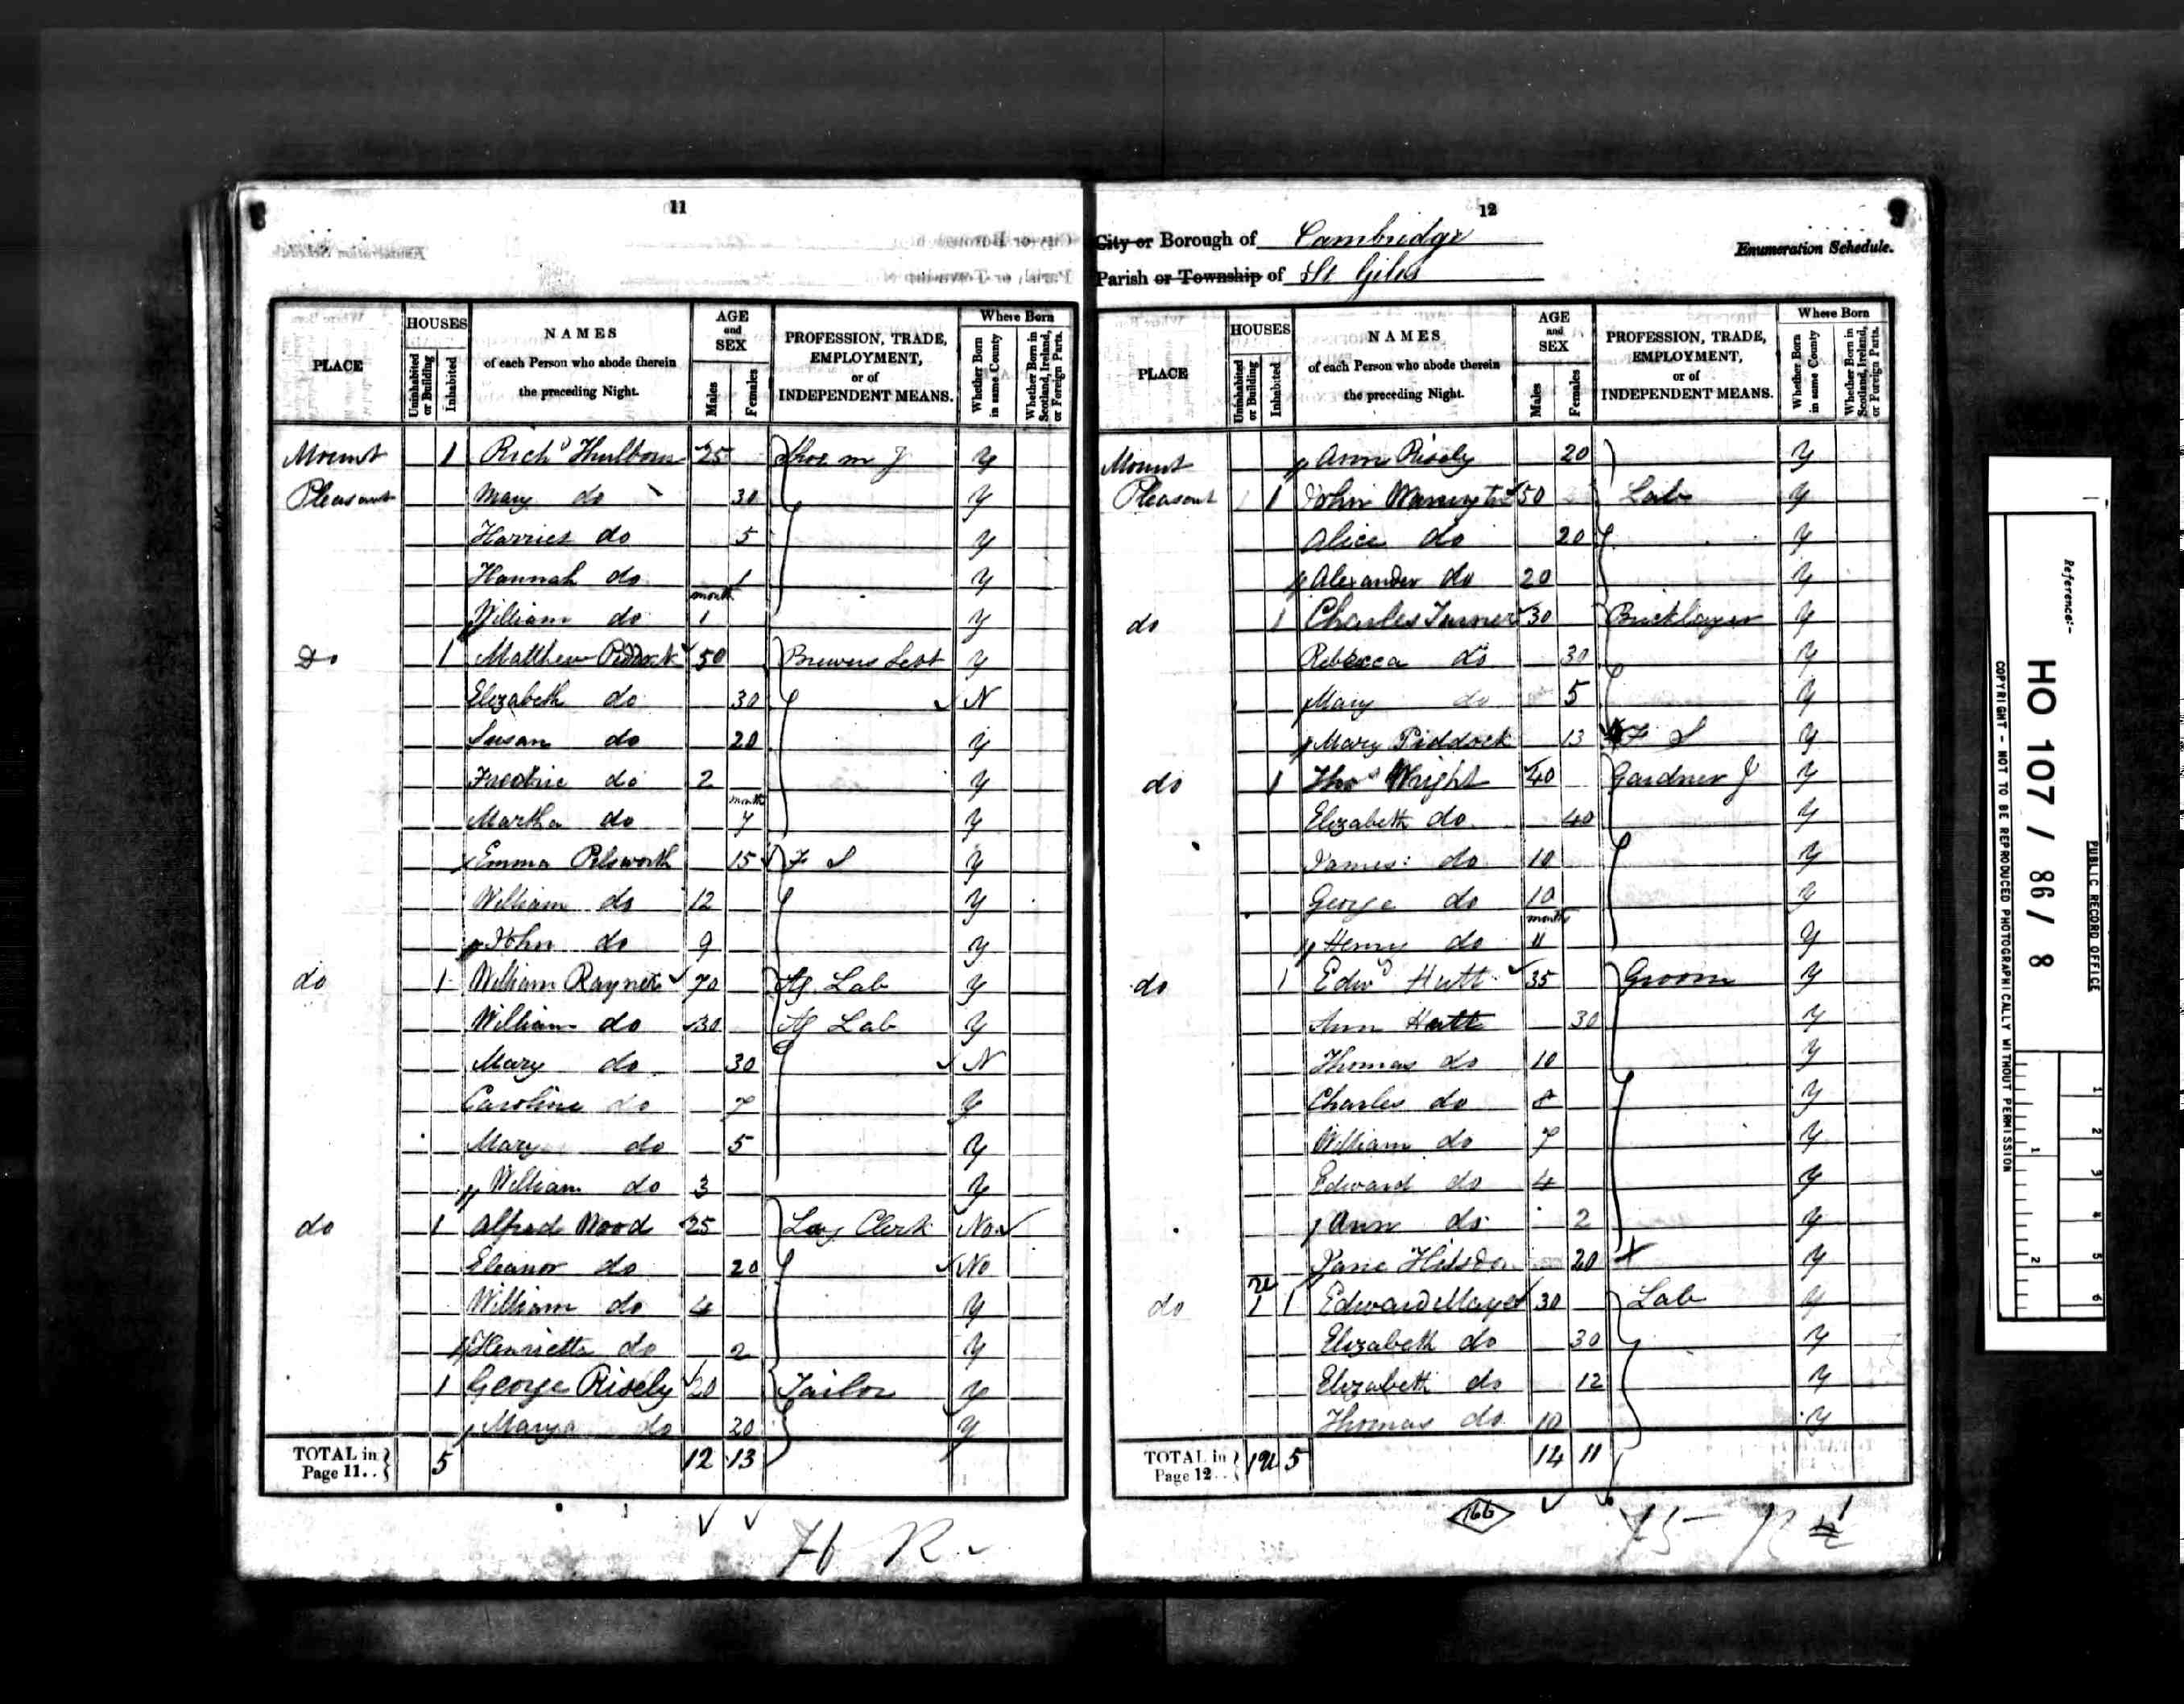 11
PLACE HOUSES Uninhabited or Building Inhabited NAMES of each Person who abode therein the preceding Night. AGE and SEX Males Females PROFESSION, TRADE, EMPLOYMENT, or of INDEPENDENT MEANS. Where Born Whether Born in same County Whether Born in Scotland, Ireland, or Foreign Parts.
Mount 1 Richd Hulbourn 25 Shoe m J Y
Pleasant Mary do 30 Y
Harriet do 5 Y
Hannah do 1 Y
William do month 1 Y
Do 1 Matthew Piddock 50 Brewers Y
Elizabeth do 30 N
Susan do 20 Y
do 2 Y
Martha do months 7 Y
Emma Pelsworth 15 F S Y
William do 12 Y
John do 9 Y
do 1 William Rayner 70 Ag Lab Y
William do 30 Ag Lab Y
Mary do 30 N
Caroline do 7 Y
Mary do 5 Y
William do 3 Y
do 1 Alfred Wood 25 Lay Clerk No
Eleanor do 20 No
William do 4 Y
Henrietta do 2 Y
1 George Risely 20 Tailor Y
do 20 Y
TOTAL in Page 11.. 5 12 13
12
City or Borough of Cambridge
Enumeration Schedule.
Parish or Township of St Giles
PLACE HOUSES Uninhabited or Building Inhabited NAMES of each Person who abode therein the preceding Night. AGE and SEX Males Females PROFESSION, TRADE, EMPLOYMENT, or of INDEPENDENT MEANS. Where Born Whether Born in same County Whether Born in Scotland, Ireland, or Foreign Parts.
Mount Ann Risely 20 Y
Pleasant 1 John 50 Lab Y
Alice do 20 Y
Alexander do 20 Y
do 1 Charles Turner 30 Bricklayer Y
Rebecca do 30 Y
Mary do 5 Y
Mary Piddock 13 F S Y
do 1 Thos Wright 40 Gardner J Y
Elizabeth do 40 Y
James do 10 Y
George do 10 Y
Henry do months 11 Y
do 1 Edwd Hutt 35 Groom Y
Ann Hutt 30 Y
Thomas do 10 Y
Charles do 8 Y
William do 7 Y
Edward do 4 Y
Ann do 2 Y
Jane 20 Y
do 1 1 Edward Mayes 30 Lab Y
Elizabeth do 30 Y
Elizabeth do 12 Y
Thomas do 10 Y
TOTAL in Page 12.. 1 5 14 11
166
Reference:-
HO 107 / 86 / 8
PUBLIC RECORD OFFICE
COPYRIGHT - NOT TO BE REPRODUCED PHOTOGRAPHICALLY WITHOUT PERMISSION
1 2 3 4 5 6
1 2